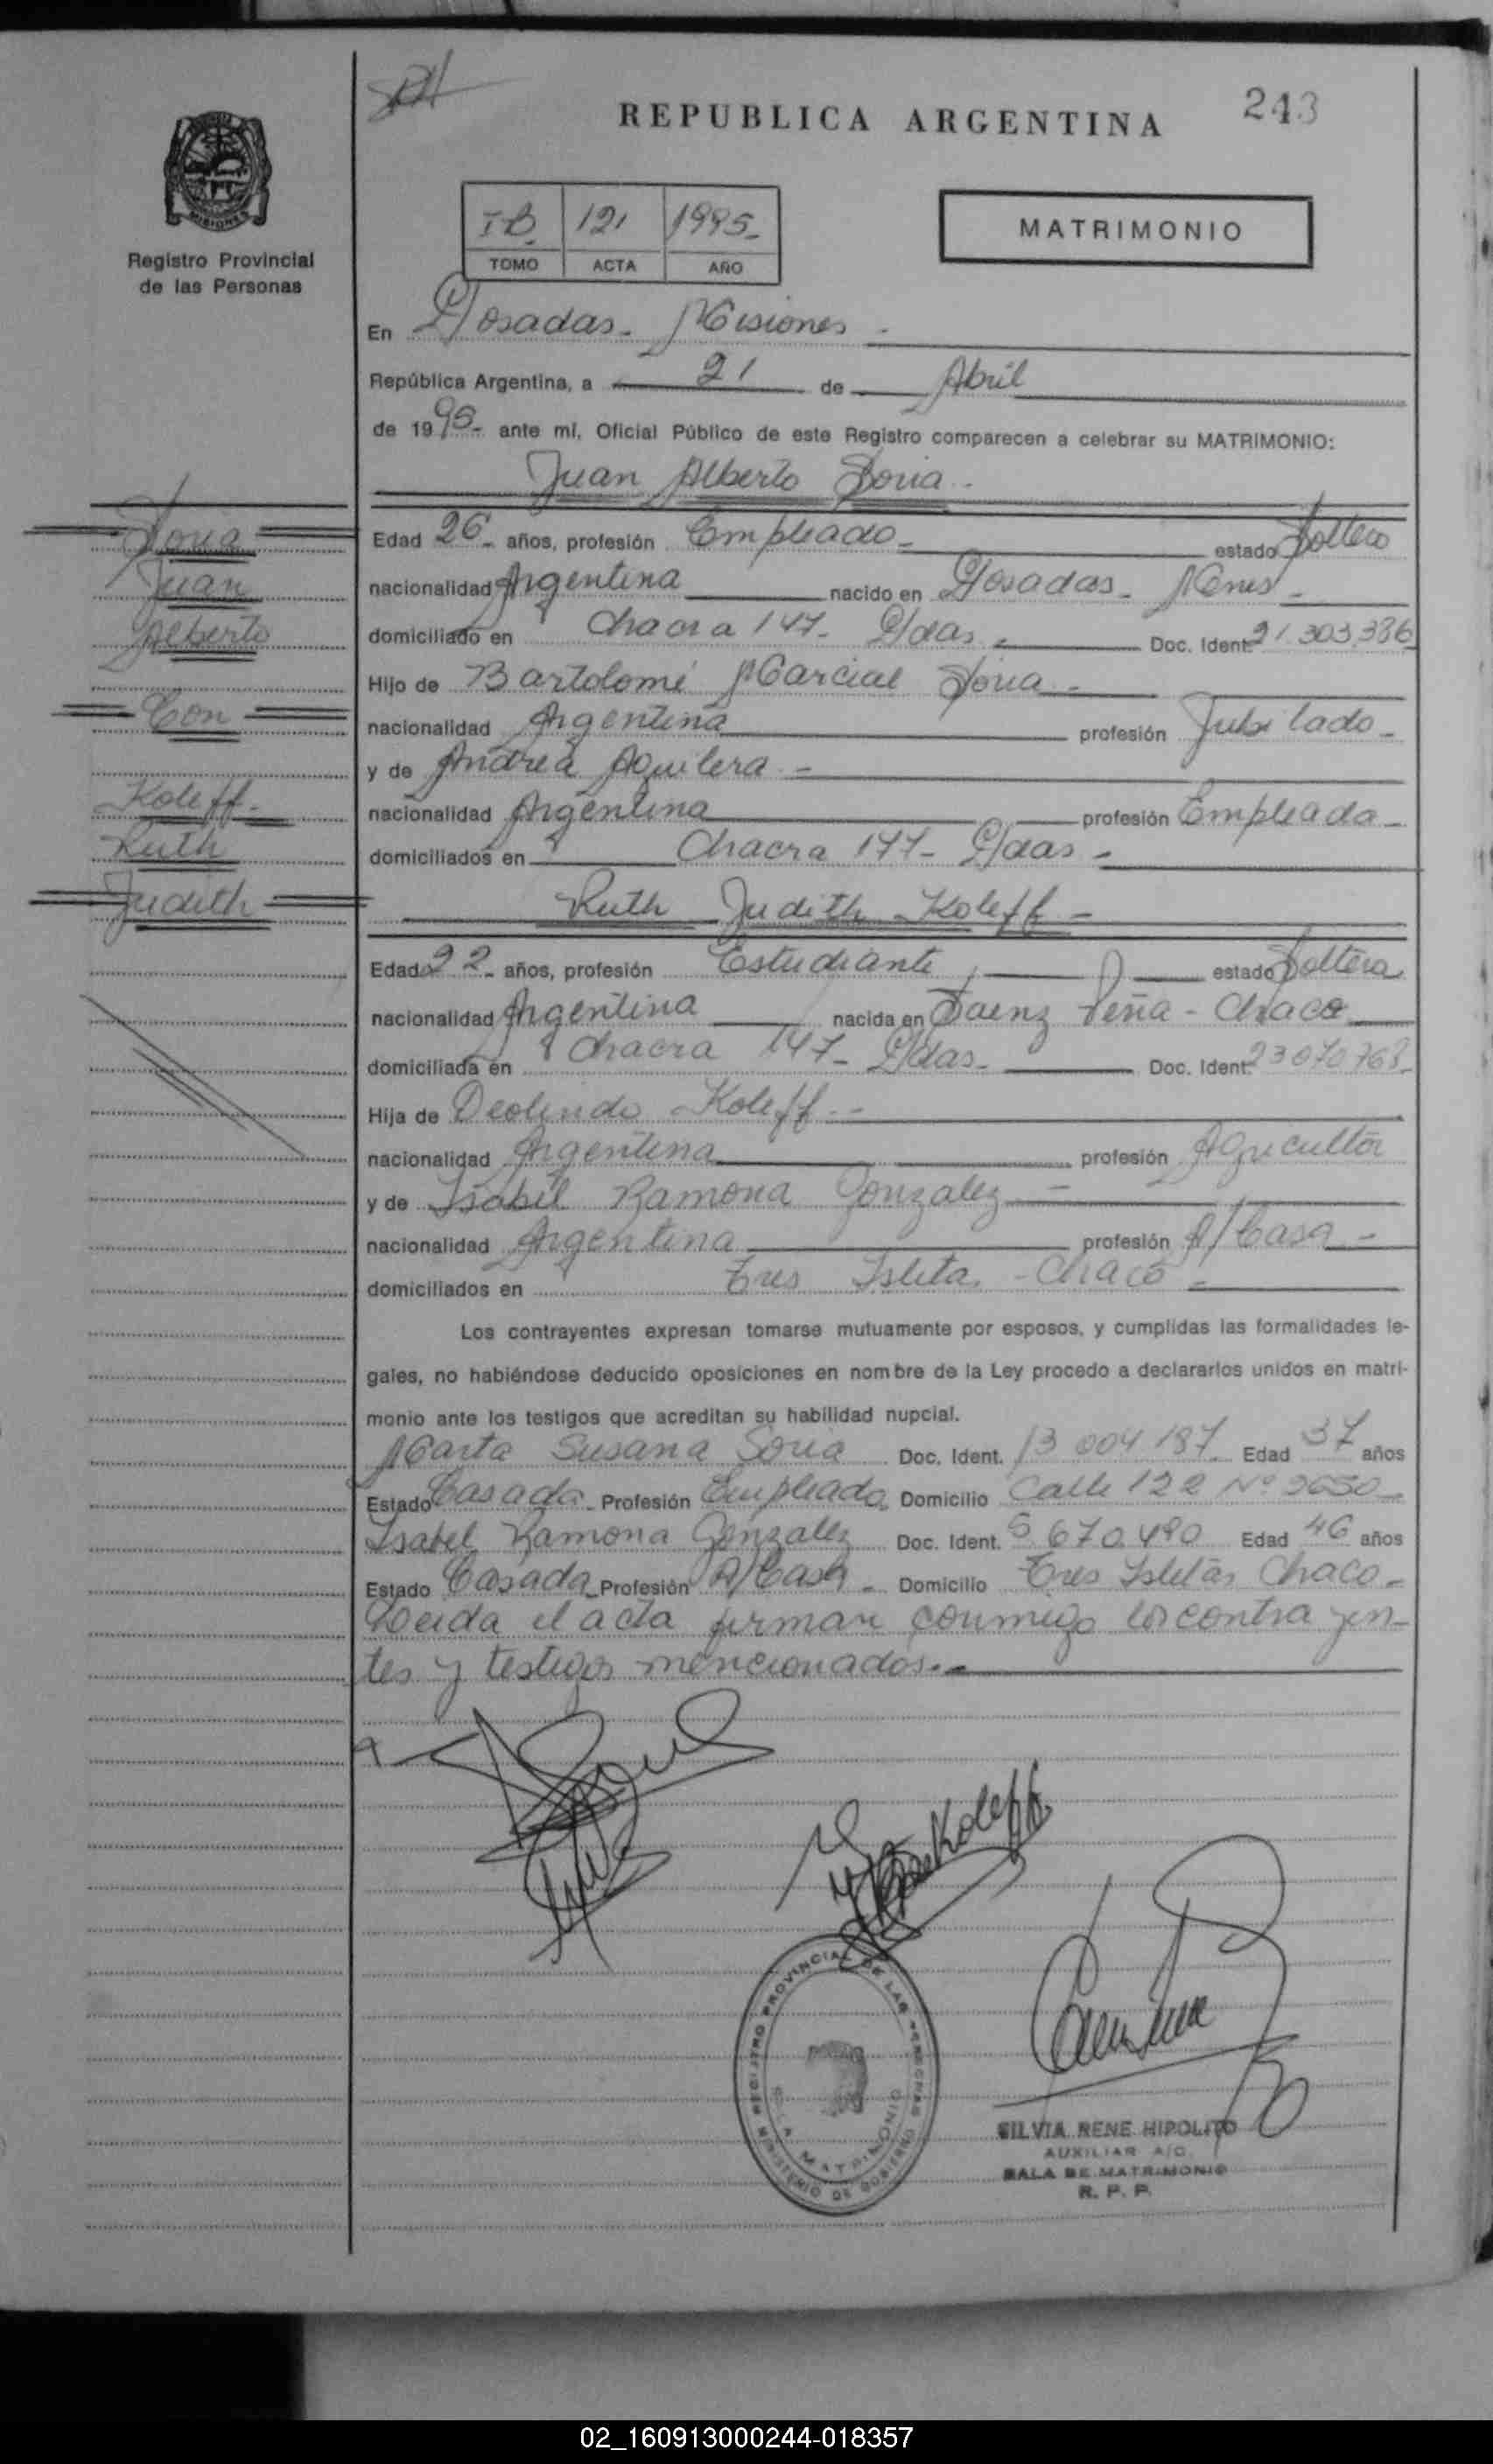 243
REPUBLICA ARGENTINA
MISIONES
Registro Provincial
de las Personas
I B. 121 1995-
TOMO ACTA AÑO
MATRIMONIO
En Posadas- Misiones -
República Argentina, a 21 de Abril
de 1995- ante mí, Oficial Público de este Registro comparecen a celebrar su MATRIMONIO:
Juan Alberto Soria -
Soria
Juan
Alberto
Con
Koleff-
Ruth
Judith
Edad 26- años, profesión Empleado- estado Soltero
nacionalidad Argentina nacido en Posadas- Mnes -
domiciliado en Chacra 147- Pdas - Doc. Ident. 21.303.336
Hijo de Bartolomé Marcial Soria -
nacionalidad Argentina profesión Jubilado -
y de Andrea Aquilera -
nacionalidad Argentina profesión Empleada -
domiciliados en Chacra 147- Pdas -
Ruth Judith Koleff -
Edad 22- años, profesión Estudiante estado Soltera
nacionalidad Argentina nacida en Saenz Peña - Chaco
domiciliada en Chacra 147- Pdas- Doc. Ident. 23070763-
Hija de Deolindo Koleff -
nacionalidad Argentina profesión Agricultor
y de Isabel Ramona Gonzalez -
nacionalidad Argentina profesión A/Casa -
domiciliados en Tres Isletas - Chaco -
Los contrayentes expresan tomarse mutuamente por esposos, y cumplidas las formalidades le-
gales, no habiéndose deducido oposiciones en nombre de la Ley procedo a declararlos unidos en matri-
monio ante los testigos que acreditan su habilidad nupcial.
Marta Susana Soria Doc. Ident. 13 004 187 Edad 37 años
Estado Casada- Profesión Empleada Domicilio Calle 122 Nº 2650-
Isabel Ramona Gonzalez Doc. Ident. 5 670.490 Edad 46 años
Estado Casada- Profesión A/Casa - Domicilio Tres Isletas Chaco -
Leida el acta firman conmigo los contrayen-
tes y testigos mencionados.-
Koleff
REGISTRO PROVINCIAL DE LAS PERSONAS
SALA MATRIMONIO
MINISTERIO DE GOBIERNO
SILVIA RENE HIPOLITO
AUXILIAR A/C.
SALA DE MATRIMONIO
R. P. P.
02_160913000244-018357